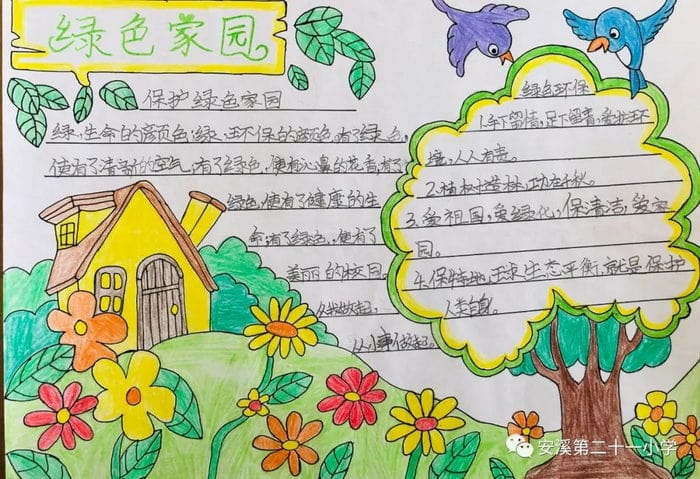 绿色家园
保护绿色家园
绿,生命的颜色;绿,环保的颜色,有了绿色,
便有了清新的空气,有了绿色,便有沁鼻的花香,有了
绿色,便有了健康的生
命,有了绿色,便有了
美丽的校园。
从我做起,
从小事做起。
绿色环保
1.手下留情,足下留青,爱护环
境,人人有责。
2.植树造林,功在千秋。
3.爱祖国,爱绿化,保清洁,爱家
园。
4.保持地球生态平衡,就是保护
人类自身。
安溪第二十一小学